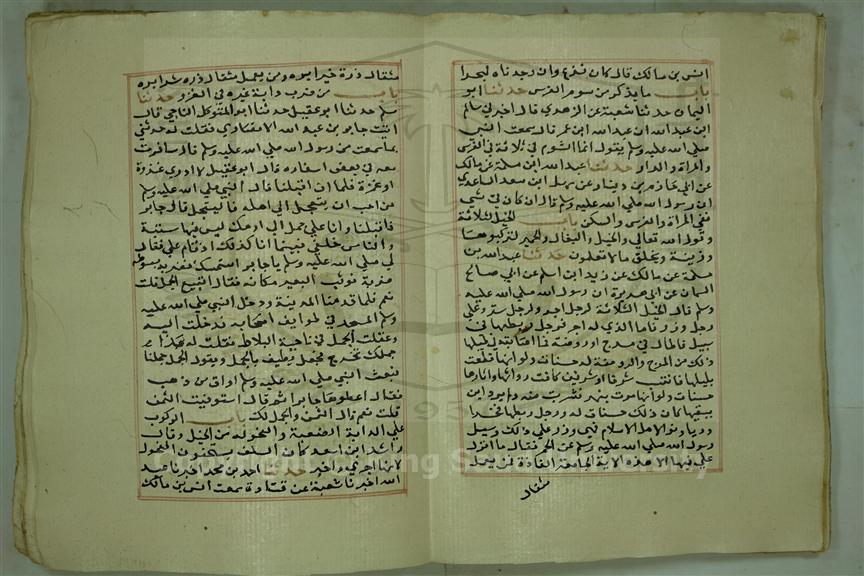 انس بن مالك قال كان فزع وان وجدناه لبحرا
باب ما يذكر من شوم الفرس حدثنا ابو
اليمان حدثنا شعبة عن الزهري قال اخبرني سالم
ابن عبد الله ان عبد الله ابن عمر قال سمعت النبي
صلى الله عليه وسلم يقول انما الشوم في ثلاثة في الفرس
والمراة والدار حدثنا عبد الله ابن مسلمة عن مالك
عن ابي حازم بن دينار عن سهل ابن سعد الساعدي
ان رسول الله صلى الله عليه وسلم قال ان كان في شي
ففي المراة والفرس والمسكن باب الخيل لثلاثة
وقول الله تعالى والخيل والبغال والحمير لتركبوها
وزينة ويخلق ما لا تعلمون حدثنا عبد الله بن
مسلمة عن مالك عن زيد ابن اسلم عن ابي صالح
السمان عن ابي هريرة ان رسول الله صلى الله عليه
وسلم قال الخيل لثلاثة لرجل اجر ولرجل ستر وعلى
رجل وزر فاما الذي له اجر فرجل ربطها في
سبيل فاطال في مرج او روضة فما اصابت في طيلها
ذلك من المرج والروضة له حسنات ولو انها قطعت
طيلها فاستنت شرفا او شرفين كانت رواثها واثارها
حسنات ولو انها مرت بنهر فشربت منه ولم يرد ان
يسقيها كان ذلك حسنات له ورجل ربطها فخرا
وريا ونوا لاهل الاسلام فهي وزر على ذلك وسيل
رسول الله صلى الله عليه وسلم عن الحمر فقال ما انزل
علي فيها الا هذه الاية الجامعة الفاذة فمن يعمل
مثقال
مثقال ذرة خيرا يره ومن يعمل مثقال ذرة شرا يره
باب من ضرب دابة غيره في الغزو حدثنا
مسلم حدثنا ابو عقيل حدثنا ابو المتوكل الناجي قال
اتيت جابر بن عبد الله الانصاري فقلت له حدثني
بما سمعت من رسول الله صلى الله عليه وسلم قال سافرت
معه في بعض اسفاره قال ابو عقيل لا ادري غزوة
او عمرة فلما ان اقبلنا قال النبي صلى الله عليه وسلم
من احب ان يتعجل الى اهله فليتعجل قال جابر
فاقبلنا وانا على جمل لي ارمك ليس فيها شية
والناس خلفي فبينما انا كذلك اذ قام علي فقال
لي صلى الله عليه وسلم يا جابر استمسك فضربه بسوطه
ضربة فوثب البعير مكانه فقال اتبيع الجمل قلت
نعم فلما قدمنا المدينة ودخل النبي صلى الله عليه
وسلم المسجد في طوايف اصحابه فدخلت اليه
وعقلت الجمل في ناحية البلاط فقلت له هذا
جملك فخرج فجعل يطيف بالجمل ويقول الجمل جملنا
فبعث النبي صلى الله عليه وسلم اواق من ذهب
فقال اعطوها جابرا ثم قال استوفيت الثمن
قلت نعم قال الثمن والجمل لك باب الركوب
على الدابة الصعبة والفحولة من الخيل وقال
راشد ابن سعد كان السلف يستحبون الفحولة
لانها اجرى واجسر حدثنا احمد بن محمد اخبرنا عبد
الله اخبرنا شعبة عن قتادة سمعت انس بن مالك